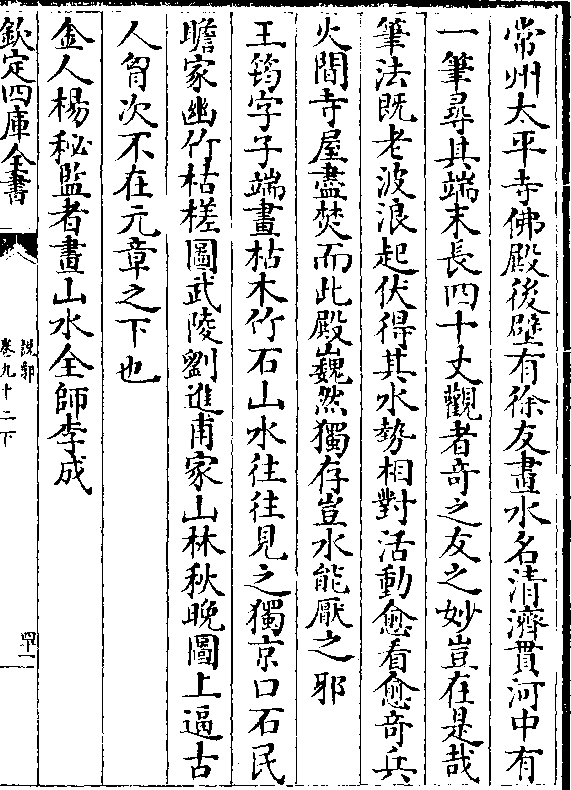 常州太平寺佛殿後壁有徐友畫水名清濟貫河中有
一筆尋其端末長四十丈觀者竒之友之妙豈在是哉
筆法既老波浪起伏得其水勢相對活動愈看愈竒兵
火間寺屋盡焚而此殿巍然獨存豈水能厭之邪
王筠字子端畫枯木竹石山水往往見之獨京口石民
瞻家幽竹枯槎圖武陵劉進甫家山林秋晚圖上逼古
人胷次不在元章之下也
金人楊秘監者畫山水全師李成
欽定四庫全書
說郛
卷九十二下
四十一